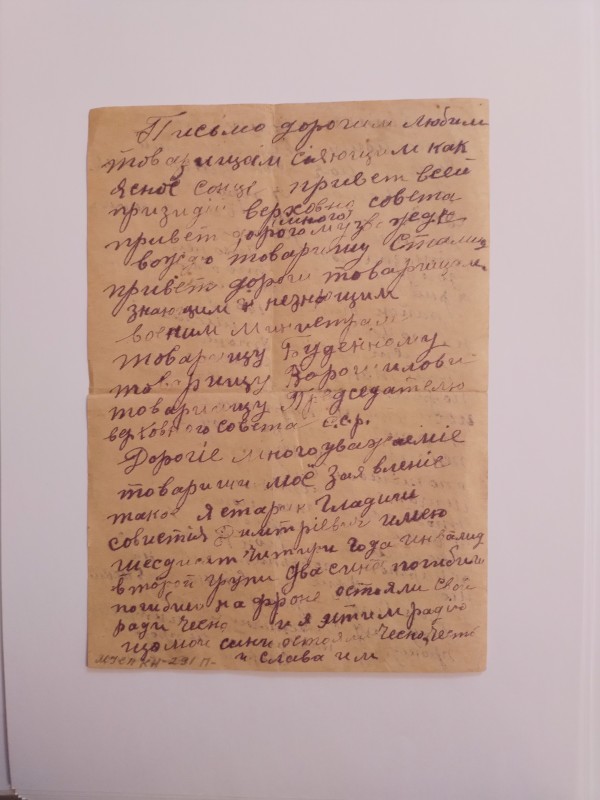 Письмо дорогим любим
товарищам сіяющим как
ясноє сонце привет всей
призидії верховно совета
привет дорогому
много
вождю товарищу Сталину
привет дороги товарищам
знающим и незнающим
военим министрам
товарищу Буденному
товарищу Ворошилови
товарищу Председателю
верховного совета ССР.
Дорогіе многоуважаеміе
товарищи моё заявленіе
такое я старик Гладкий
Дмитріевич имею
шесдисят читири года инвалид
второй групи два сина погибили
погибли на фроне остояли свои
ради чесно и я этим
що мои сини остояли чесно, честь
и слава им
КП-291